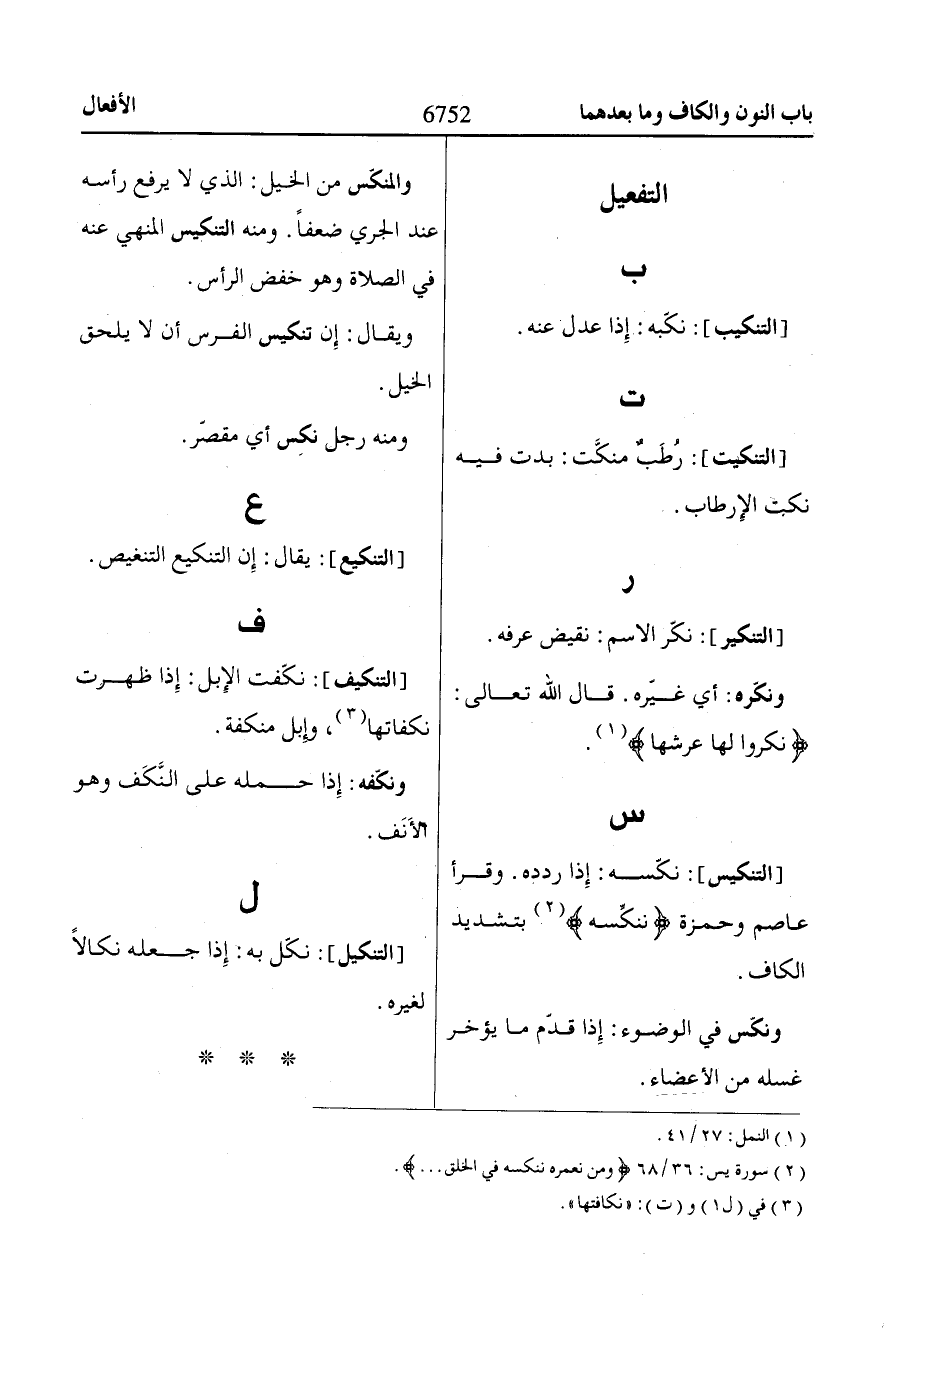 باب النون والكاف وما بعدهما
6752
الأفعال
التفعيل
ب
[التنكيب]: نكّبه: إذا عدل عنه.
ت
[التنكيت]: رُطَبٌ منكَّت: بدت فيه
نكت الإرطاب.
ر
[التنكير]: نكّر الاسم: نقيض عرفه.
ونكّره: أي غيّره. قال الله تعالى:
﴿نكروا لها عرشها﴾(١).
س
[التنكيس]: نكّسه: إذا ردده. وقرأ
عاصم وحمزة ﴿ننكِّسه﴾(٢) بتشديد
الكاف.
ونكّس في الوضوء: إذا قدّم ما يؤخر
غسله من الأعضاء.
والمنكّس من الخيل: الذي لا يرفع رأسه
عند الجري ضعفاً. ومنه التنكيس المنهي عنه
في الصلاة وهو خفض الرأس.
ويقال: إن تنكيس الفرس أن لا يلحق
الخيل.
ومنه رجل نكس أي مقصّر.
ع
[التنكيع]: يقال: إن التنكيع التنغيص.
ف
[التنكيف]: نكّفت الإبل: إذا ظهرت
نكفاتها(٣)، وإبل منكفة.
ونكّفه: إذا حمله على النَّكَف وهو
الأَنَف.
ل
[التنكيل]: نكّل به: إذا جعله نكالاً
لغيره.
* * *
(١) النمل: ٢٧/ ٤١.
(٢) سورة يس: ٣٦/ ٦٨ ﴿ومن نعمره ننكسه في الخلق...﴾.
(٣) في (ل١) و(ت): «نكافتها».